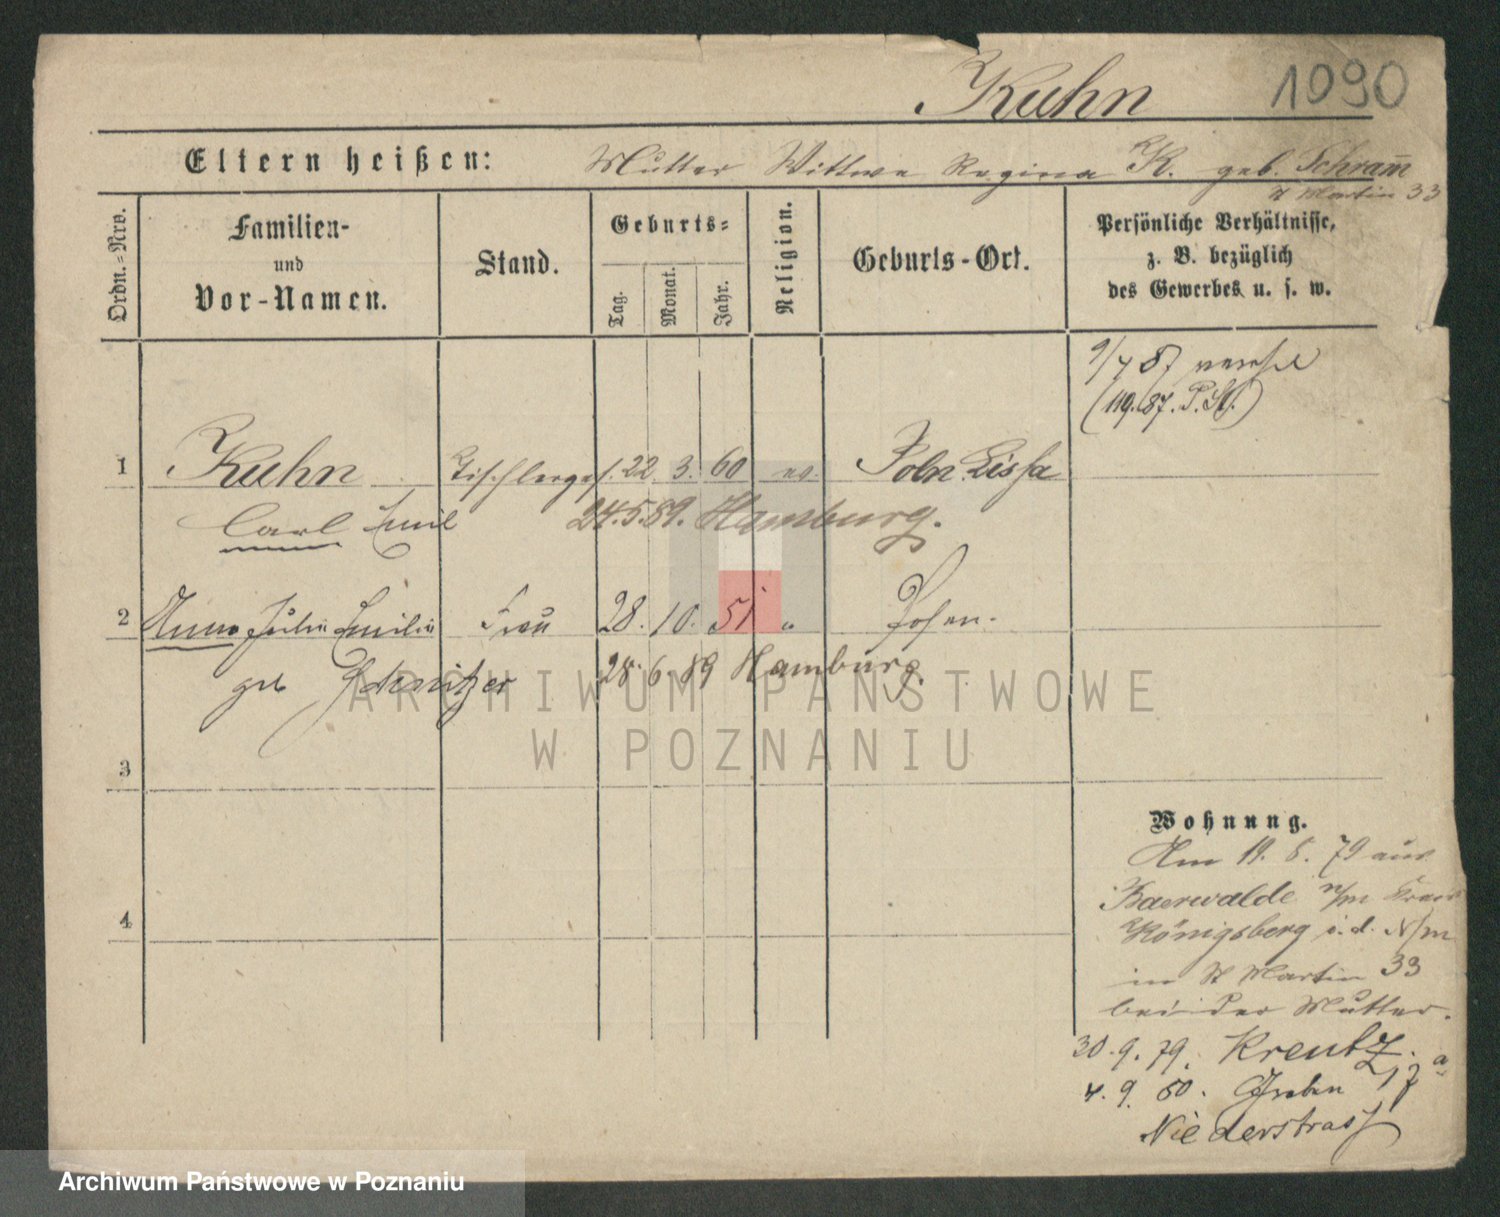 Kuhn 1090
Eltern heißen: Mutter Wittwe Regina K. geb. Schram̅
St Martin 33
Ordn.-Nro.
Familien-
und
Vor-Namen.
Stand.
Geburts-
Tag.
Monat.
Jahr.
Religion.
Geburts-Ort.
Persönliche Verhältnisse,
z. B. bezüglich
des Gewerbes u. s. w.
9/7 87
(119.87. P. St.)
1 Kuhn Tischlerges. 22. 3. 60 ev. Poln. Lissa
Carl Emil 24.5.89. Hamburg.
2 Anna Julie Emilie Frau 28. 10. 51 " Posen.
geb 28. 6. 89 Hamburg.
3
4
Wohnung.
Am 19. 8. 79 aus
Baerwalde n/m
Königsberg i. d. N/m
in St Martin 33
bei der Mutter.
30. 9. 79. Kreutz.
4. 9. 80. Graben
Niederstrass
ARCHIWUM PAŃSTWOWE
W POZNANIU
Archiwum Państwowe w Poznaniu